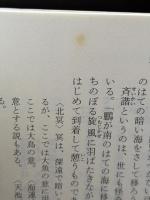 のはての暗い海をさして移
斉諧というのは、世にも怪
いる。「鵬が南のはての海に移
ちのぼる旋風に羽ばたきなが
はじめて到着して憩うもので
〈北冥〉冥は、深遠で暗い
るが、ここでは大魚の意
ここでは大鳥の意。〈海運
意とする説もある。〈天池